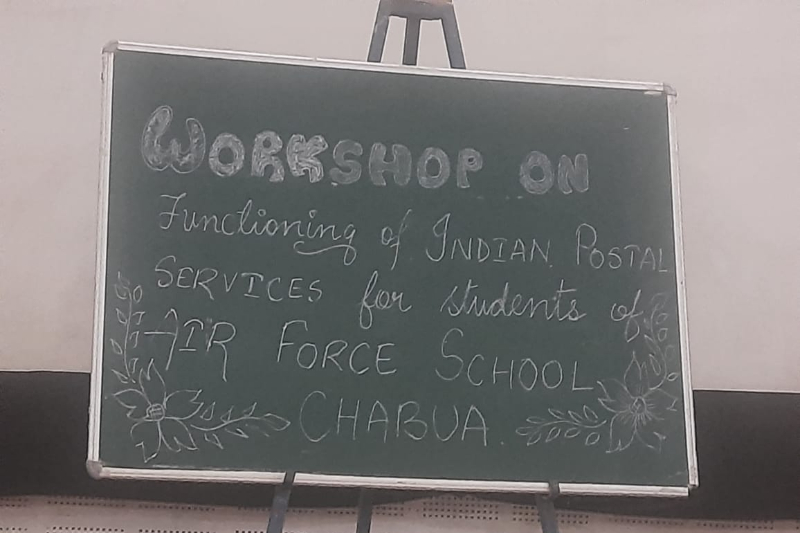 WORKSHOP ON
Functioning of INDIAN POSTAL
SERVICES for students of
AIR FORCE SCHOOL
CHABUA.